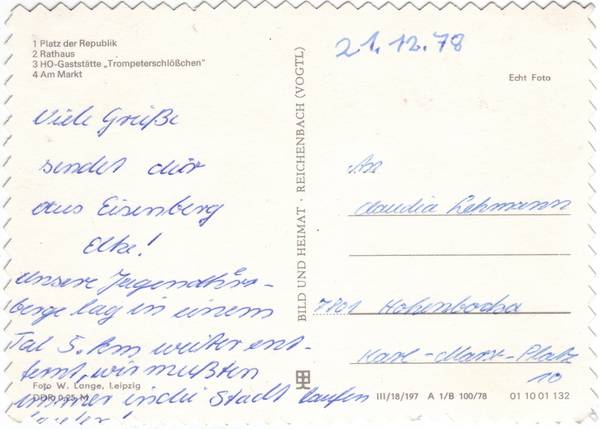 1 Platz der Republik
2 Rathaus
3 HO-Gaststätte „Trompeterschlößchen"
4 Am Markt
21.12.78
Echt Foto
Viele Grüße
sendet dir
aus Eisenberg
Elke!
unsere Jugendher-
berge lag in einem
Tal 5. km weiter ent-
fernt, wir mußten
immer in die Stadt laufen
BILD UND HEIMAT · REICHENBACH (VOGTL)
An
Claudia Lehmann
7801 Hohenbocka
Karl-Marx-Platz
10
Foto W. Lange, Leipzig
DDR 0,25 M
III/18/197 A 1/B 100/78 01 10 01 132